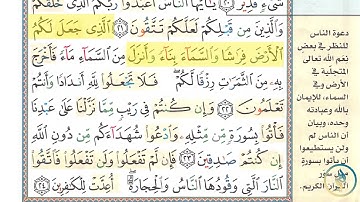 شَىْءٍ قَدِيرٌ ٢٠ يَٰٓأَيُّهَا ٱلنَّاسُ ٱعْبُدُوا۟ رَبَّكُمُ ٱلَّذِى خَلَقَكُمْ
وَٱلَّذِينَ مِن قَبْلِكُمْ لَعَلَّكُمْ تَتَّقُونَ ٢١ ٱلَّذِى جَعَلَ لَكُمُ
ٱلْأَرْضَ فِرَٰشًا وَٱلسَّمَآءَ بِنَآءً وَأَنزَلَ مِنَ ٱلسَّمَآءِ مَآءً فَأَخْرَجَ
بِهِۦ مِنَ ٱلثَّمَرَٰتِ رِزْقًا لَّكُمْ فَلَا تَجْعَلُوا۟ لِلَّهِ أَندَادًا وَأَنتُمْ
تَعْلَمُونَ ٢٢ وَإِن كُنتُمْ فِى رَيْبٍ مِّمَّا نَزَّلْنَا عَلَىٰ عَبْدِنَا
فَأْتُوا۟ بِسُورَةٍ مِّن مِّثْلِهِۦ وَٱدْعُوا۟ شُهَدَآءَكُم مِّن دُونِ ٱللَّهِ
إِن كُنتُمْ صَٰدِقِينَ ٢٣ فَإِن لَّمْ تَفْعَلُوا۟ وَلَن تَفْعَلُوا۟ فَٱتَّقُوا۟
ٱلنَّارَ ٱلَّتِى وَقُودُهَا ٱلنَّاسُ وَٱلْحِجَارَةُ أُعِدَّتْ لِلْكَٰفِرِينَ ٢٤
دعوة الناس
للنظر في بعض
نعم الله تعالى
المتجلية في
الأرض وفي
السماء، للإيمان
بالله وعبادته
وحده، وبيان
أن الناس لم
ولن يستطيعوا
أن يأتوا بسورة
القرآن الكريم.